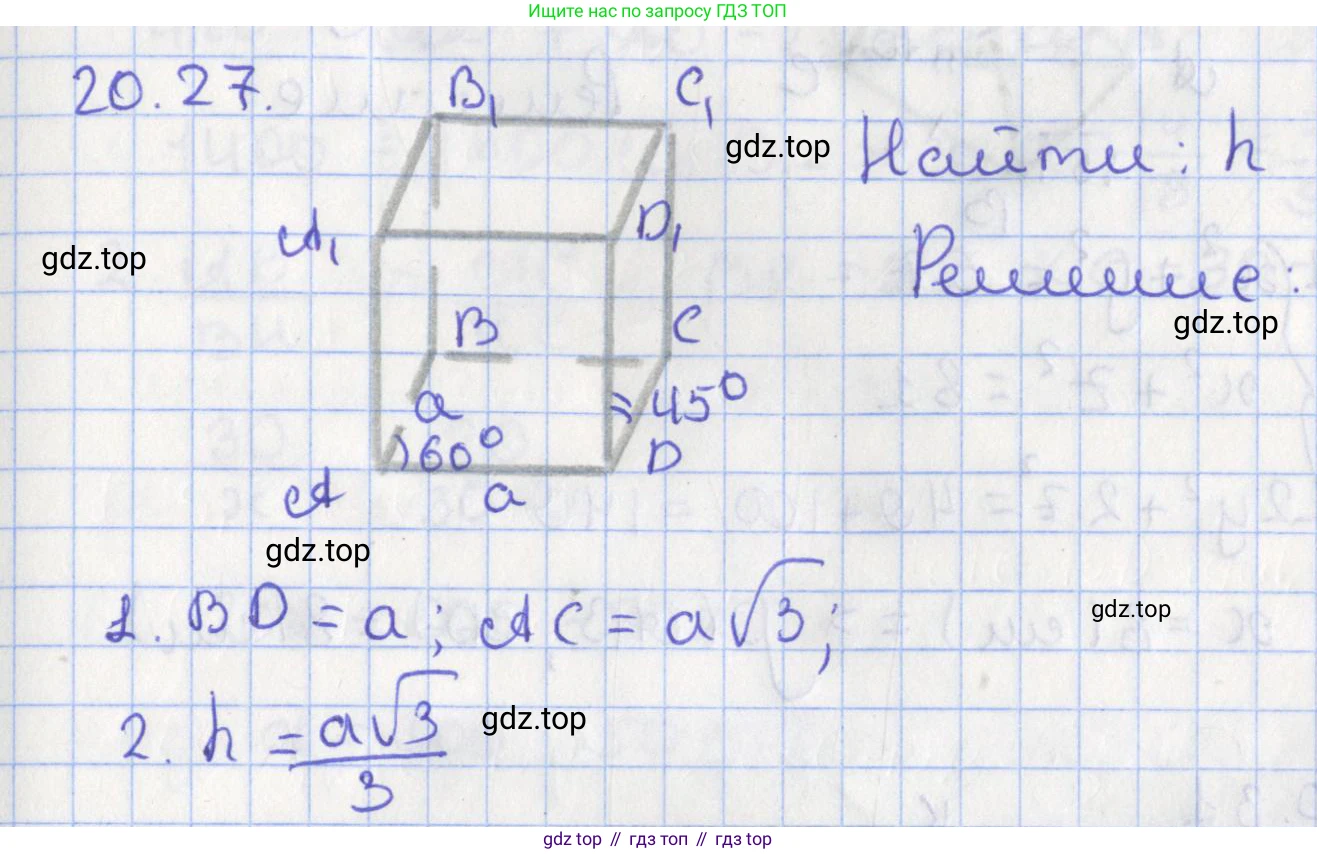 Ищите нас по запросу ГДЗ ТОП
20.27.
B₁
C₁
gdz.top
Найти: h
A₁
D₁
gdz.top
Решение:
B
C
gdz.top
a
45°
60°
D
A
a
gdz.top
1. BD = a; AC = a√3;
gdz.top
2. h = a√3/3
gdz.top
gdz top // гдз топ // gdz top